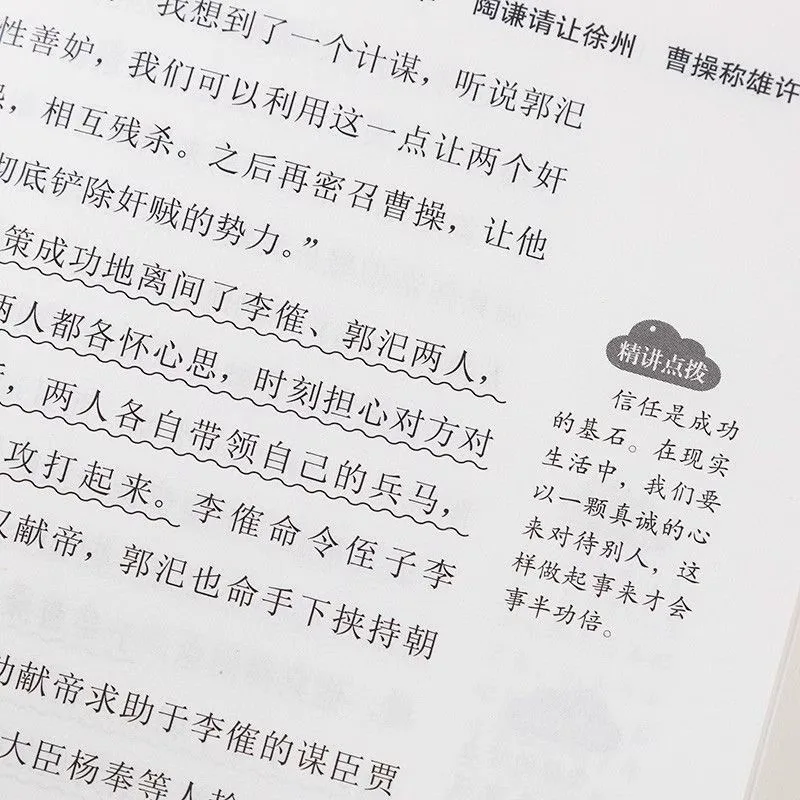 陶谦请让徐州 曹操称雄许
我想到了一个计谋，听说郭汜
性善妒，我们可以利用这一点让两个奸
，相互残杀。之后再密召曹操，让他
彻底铲除奸贼的势力。”
策成功地离间了李傕、郭汜两人，
两人都各怀心思，时刻担心对方对
，两人各自带领自己的兵马，
攻打起来。李傕命令侄子李
献帝，郭汜也命手下挟持朝
献帝求助于李傕的谋臣贾
大臣杨奉等人
精讲点拨
信任是成功
的基石。在现实
生活中，我们要
以一颗真诚的心
来对待别人，这
样做起事来才会
事半功倍。